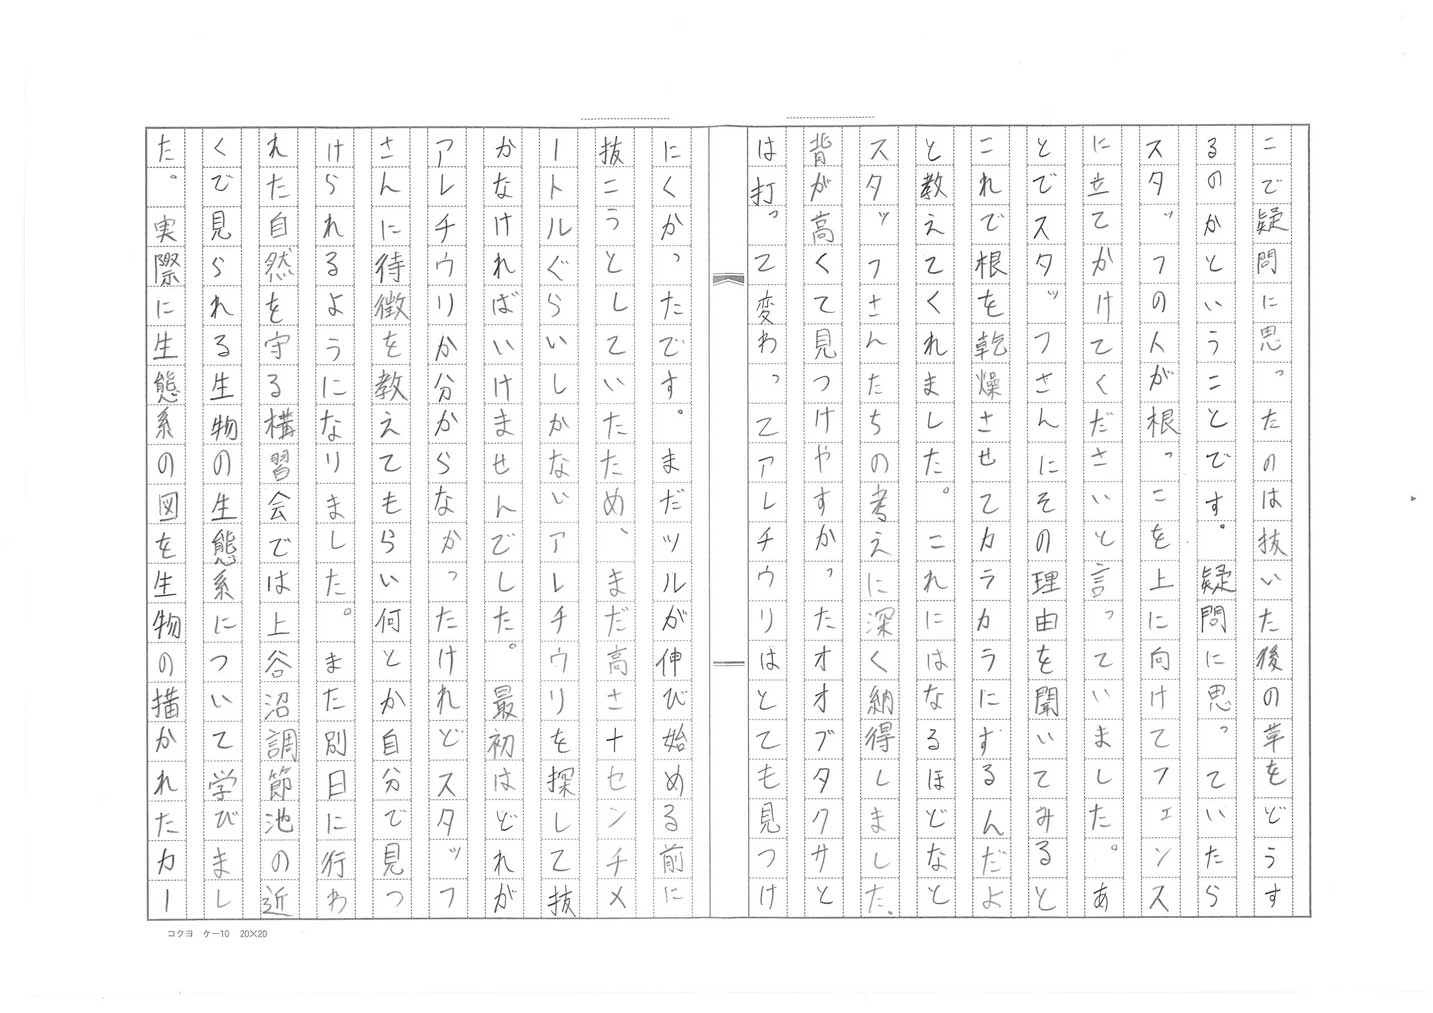 こで疑問に思ったのは抜いた後の草をどうす
るのかということです。疑問に思っていたら
スタッフの人が根っこを上に向けてフェンス
に立てかけてくださいと言っていました。あ
とでスタッフさんにその理由を聞いてみると
これで根を乾燥させてカラカラにするんだよ
と教えてくれました。これにはなるほどなと
スタッフさんたちの考えに深く納得しました。
背が高くて見つけやすかったオオブタクサと
は打って変わってアレチウリはとても見つけ
にくかったです。まだツルが伸び始める前に
抜こうとしていたため、まだ高さナセンチメ
ートルぐらいしかないアレチウリを探して抜
かなければいけませんでした。最初はどれが
アレチウリか分からなかったけれどスタッフ
さんに待徴を教えてもらい何とか自分で見つ
けられるようになりました。また別日に行わ
れた自然を守る構習会では上谷沼調節池の近
くで見られる生物の生態系について学びまし
た。実際に生態系の図を生物の描かれたカー
コクヨ ケー10 20×20